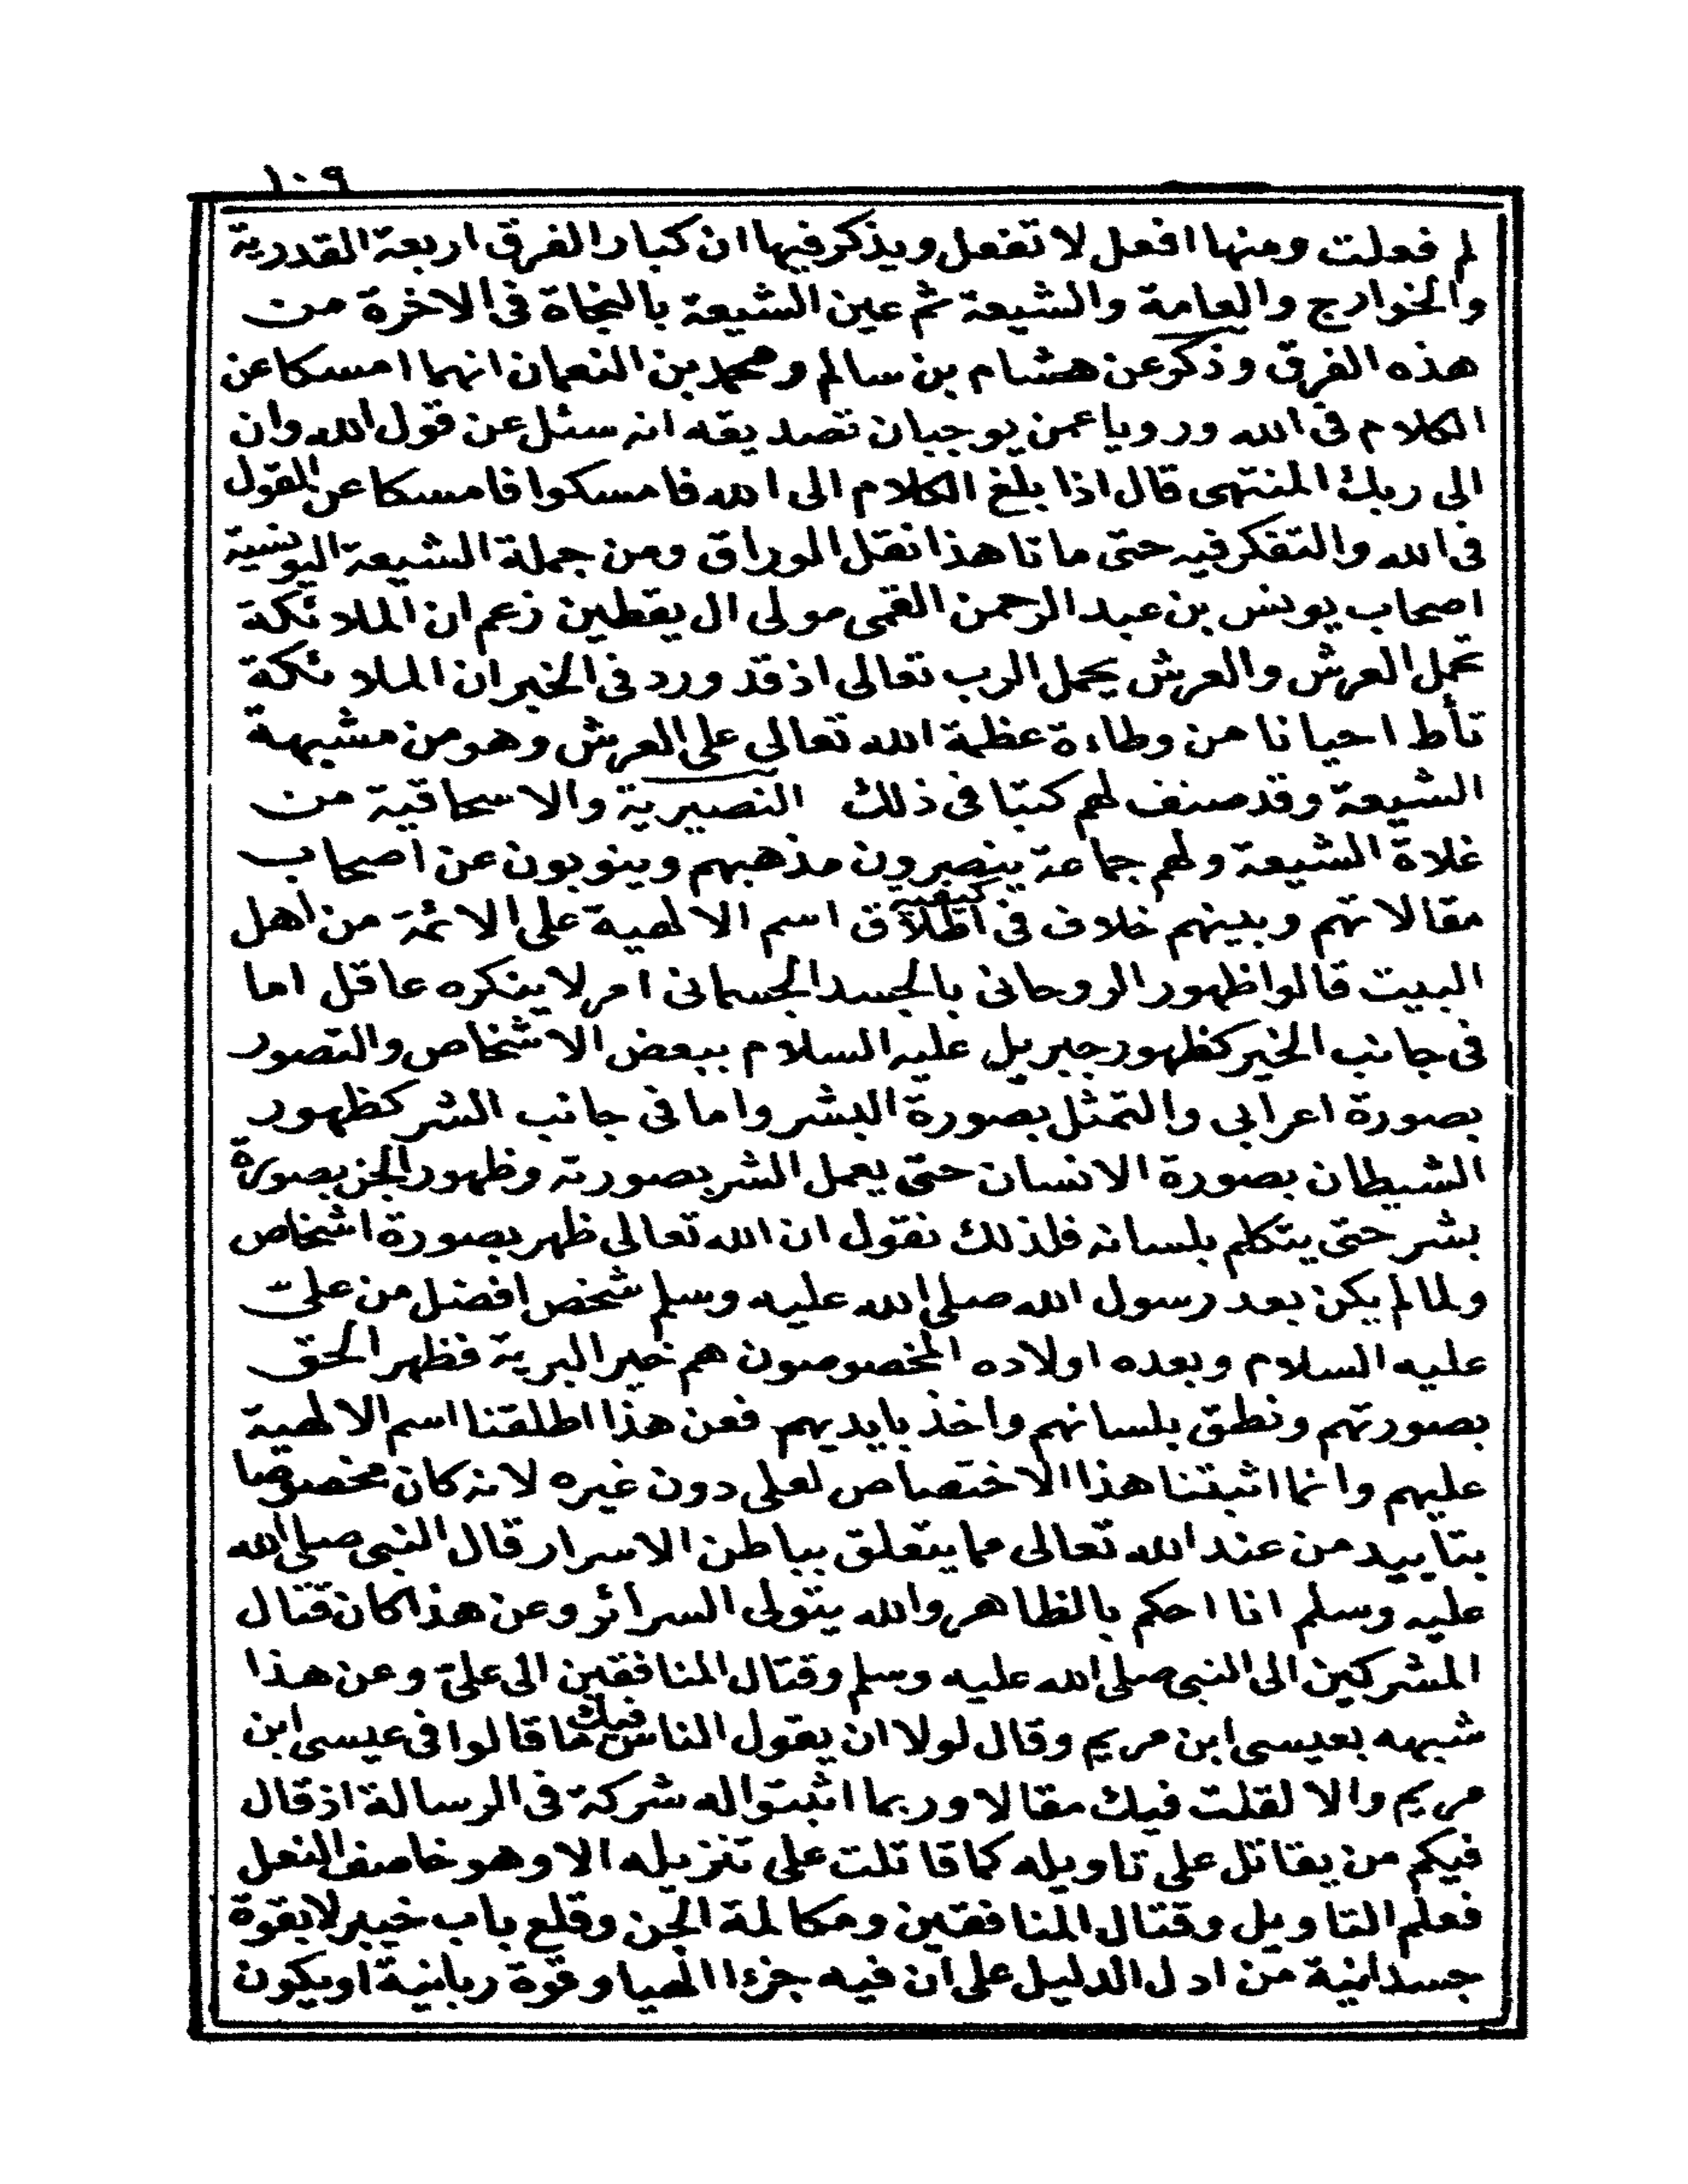 ١٠٩
لم فعلت ومنها افعل لا تفعل ويذكر فيها ان كبار الفرق اربعة القدرية
والخوارج والعامة والشيعة ثم عين الشيعة بالنجاة فى الاخرة من
هذه الفرق وذكر عن هشام بن سالم ومحمد بن النعمان انهما امسكا عن
الكلام فى الله ورويا عمن يوجبان تصديقه انه سئل عن قول الله وان
الى ربك المنتهى قال اذا بلغ الكلام الى الله فامسكوا فامسكا عن القول
فى الله والتفكر فيه حتى ماتا هذا نقل الوراق ومن جملة الشيعة اليونسية
اصحاب يونس بن عبد الرحمن القمى مولى ال يقطين زعم ان الملائكة
تحمل العرش والعرش يحمل الرب تعالى اذ قد ورد فى الخبر ان الملائكة
تأط احيانا من وطاءة عظمة الله تعالى على العرش وهو من مشبهة
الشيعة وقد صنف لهم كتبا فى ذلك النصيرية والاسحاقية من
غلاة الشيعة ولهم جماعة ينصرون مذهبهم وينوبون عن اصحاب
مقالاتهم وبينهم خلاف فى كيفية اطلاق اسم الالهية على الائمة من اهل
البيت قالوا ظهور الروحانى بالجسد الجسمانى امر لا ينكره عاقل اما
فى جانب الخير كظهور جبريل عليه السلام ببعض الاشخاص والتصور
بصورة اعرابى والتمثل بصورة البشر واما فى جانب الشر كظهور
الشيطان بصورة الانسان حتى يعمل الشر بصورته وظهور الجن بصورة
بشر حتى يتكلم بلسانه فلذلك نقول ان الله تعالى ظهر بصورة اشخاص
ولما لم يكن بعد رسول الله صلى الله عليه وسلم شخص افضل من على
عليه السلام وبعده اولاده المخصوصون هم خير البرية فظهر الحق
بصورتهم ونطق بلسانهم واخذ بايديهم فعن هذا اطلقنا اسم الالهية
عليهم وانما اثبتنا هذا الاختصاص لعلى دون غيره لانه كان مخصوصا
بتاييد من عند الله تعالى مما يتعلق بباطن الاسرار قال النبى صلى الله
عليه وسلم انا احكم بالظاهر والله يتولى السرائر وعن هذا كان قتال
المشركين الى النبى صلى الله عليه وسلم وقتال المنافقين الى على وعن هذا
شبهه بعيسى ابن مريم وقال لولا ان يقول الناس فيك ما قالوا فى عيسى ابن
مريم والا لقلت فيك مقالا وربما اثبتوا له شركة فى الرسالة اذ قال
فيكم من يقاتل على تاويله كما قاتلت على تنزيله الا وهو خاصف النعل
فعلم التاويل وقتال المنافقين ومكالمة الجن وقلع باب خيبر لا بقوة
جسدانية من ادل الدليل على ان فيه جزءا الهيا وقوة ربانية او يكون